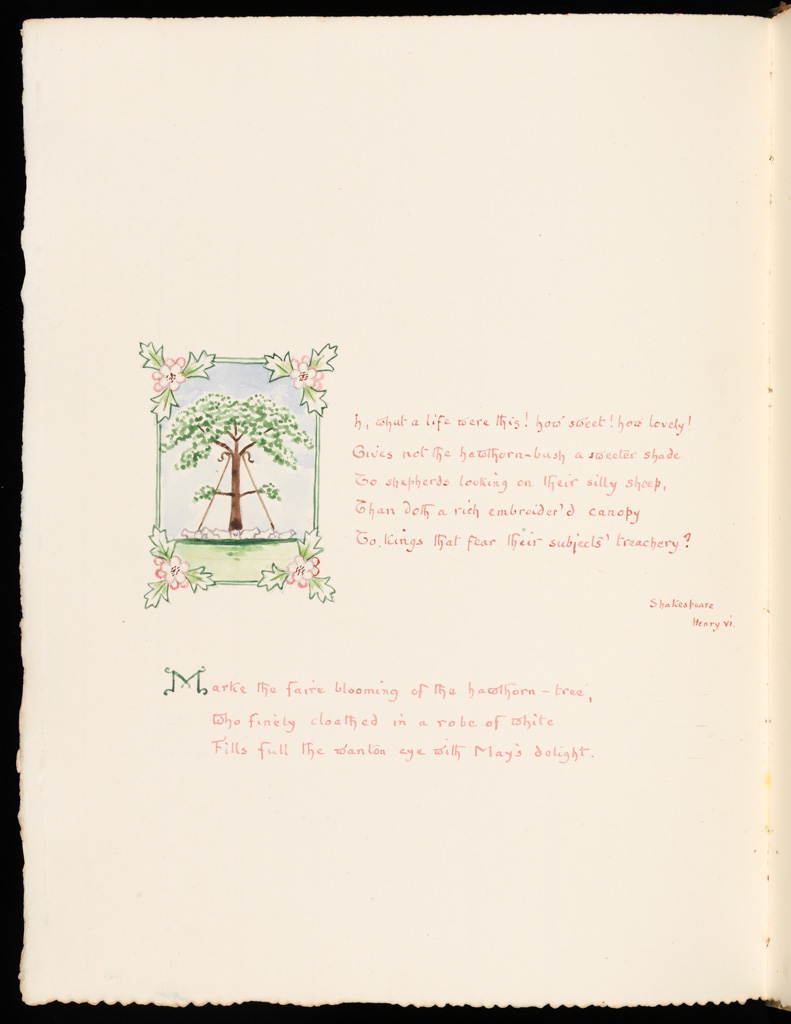 Ah, what a life were this! how sweet! how lovely!
Gives not the hawthorn-bush a sweeter shade
To shepherds looking on their silly sheep,
Than doth a rich embroider'd canopy
To kings that fear their subjects' treachery?
Shakespeare
Henry VI.
Marke the faire blooming of the hawthorn-tree,
Who finely cloathed in a robe of white
Fills full the wanton eye with May's delight.